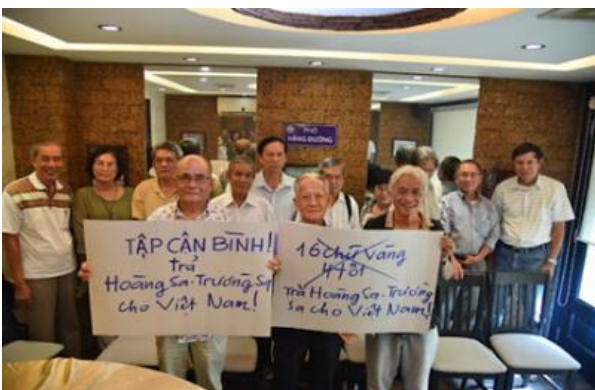 PHỐ
HÀNG ĐƯỜNG
TẬP CẬN BÌNH!
trả
Hoàng Sa-Trường Sa
cho Việt Nam!
16 chữ vàng
4 tốt
Trả Hoàng Sa-Trường
sa cho Việt Nam!